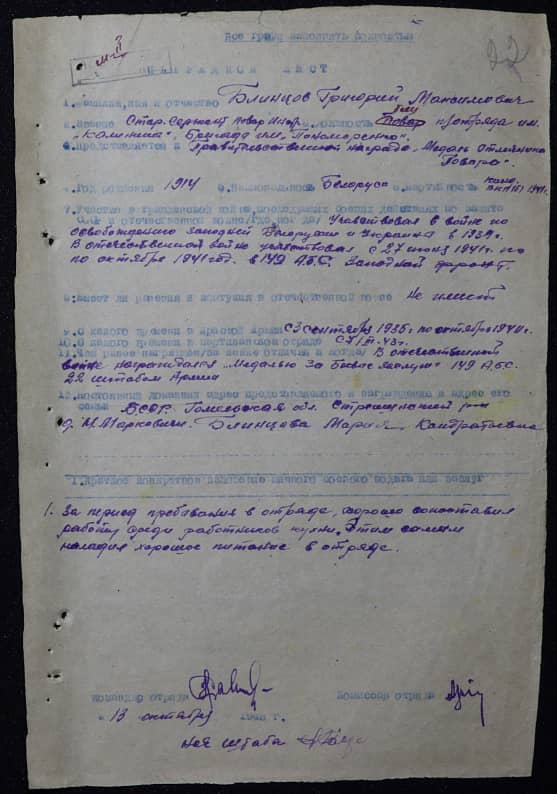 Все графы заполнять
22
НАГРАДНОЙ ЛИСТ
1. Фамилия, имя и отчество Блинцов Григорий Максимович
2. Звание Стар. Сержант Повар отряда им.
"Калинина", Бригада им. "Пономоренко".
3. Представляется к Правительственной награде, Медаль Отличного
Повара".
4. Год рождения 1914 5. Национальность Белорус 6. Партийность
7. Участие в гражданской войне
и отечественной войне Участвовал в войне по
освобождению западной Белорусии и Украина в 1939г.
В отечественной войне участвовал с 27 июня 1941г. по
по октября 1941 год. в 149 А.Б.С. Западной фронт.
8. Имеет ли ранения и контузии в отечественной войне Не имеет
9. С какого времени в Красной Армии С 3 сентября 1936г. по октября 1941г.
10. С какого времени в партизанском отряде С
11. Чем ранее награжден В отечественной
войне награждался "Медалью За Боевые заслуги" 149 А.Б.С.
22 штабом Армии
12. Постоянный домашний адрес представляемого к награждению и адрес его
семьи БССР. Гомельская обл. Стрешинский р-н
д. Н. Марковичи. Блинцова Мария Кандратьевна
1. Краткое конкретное изложение личного боевого подвига или заслуг
1. За период пребывания в отряде, хорошо
работу среди работников кухни, Этим самым
наладил хорошое питание в отряде.
Командир отряда
Комиссар отряда
"13 октября 1943 г.
Нач штаба